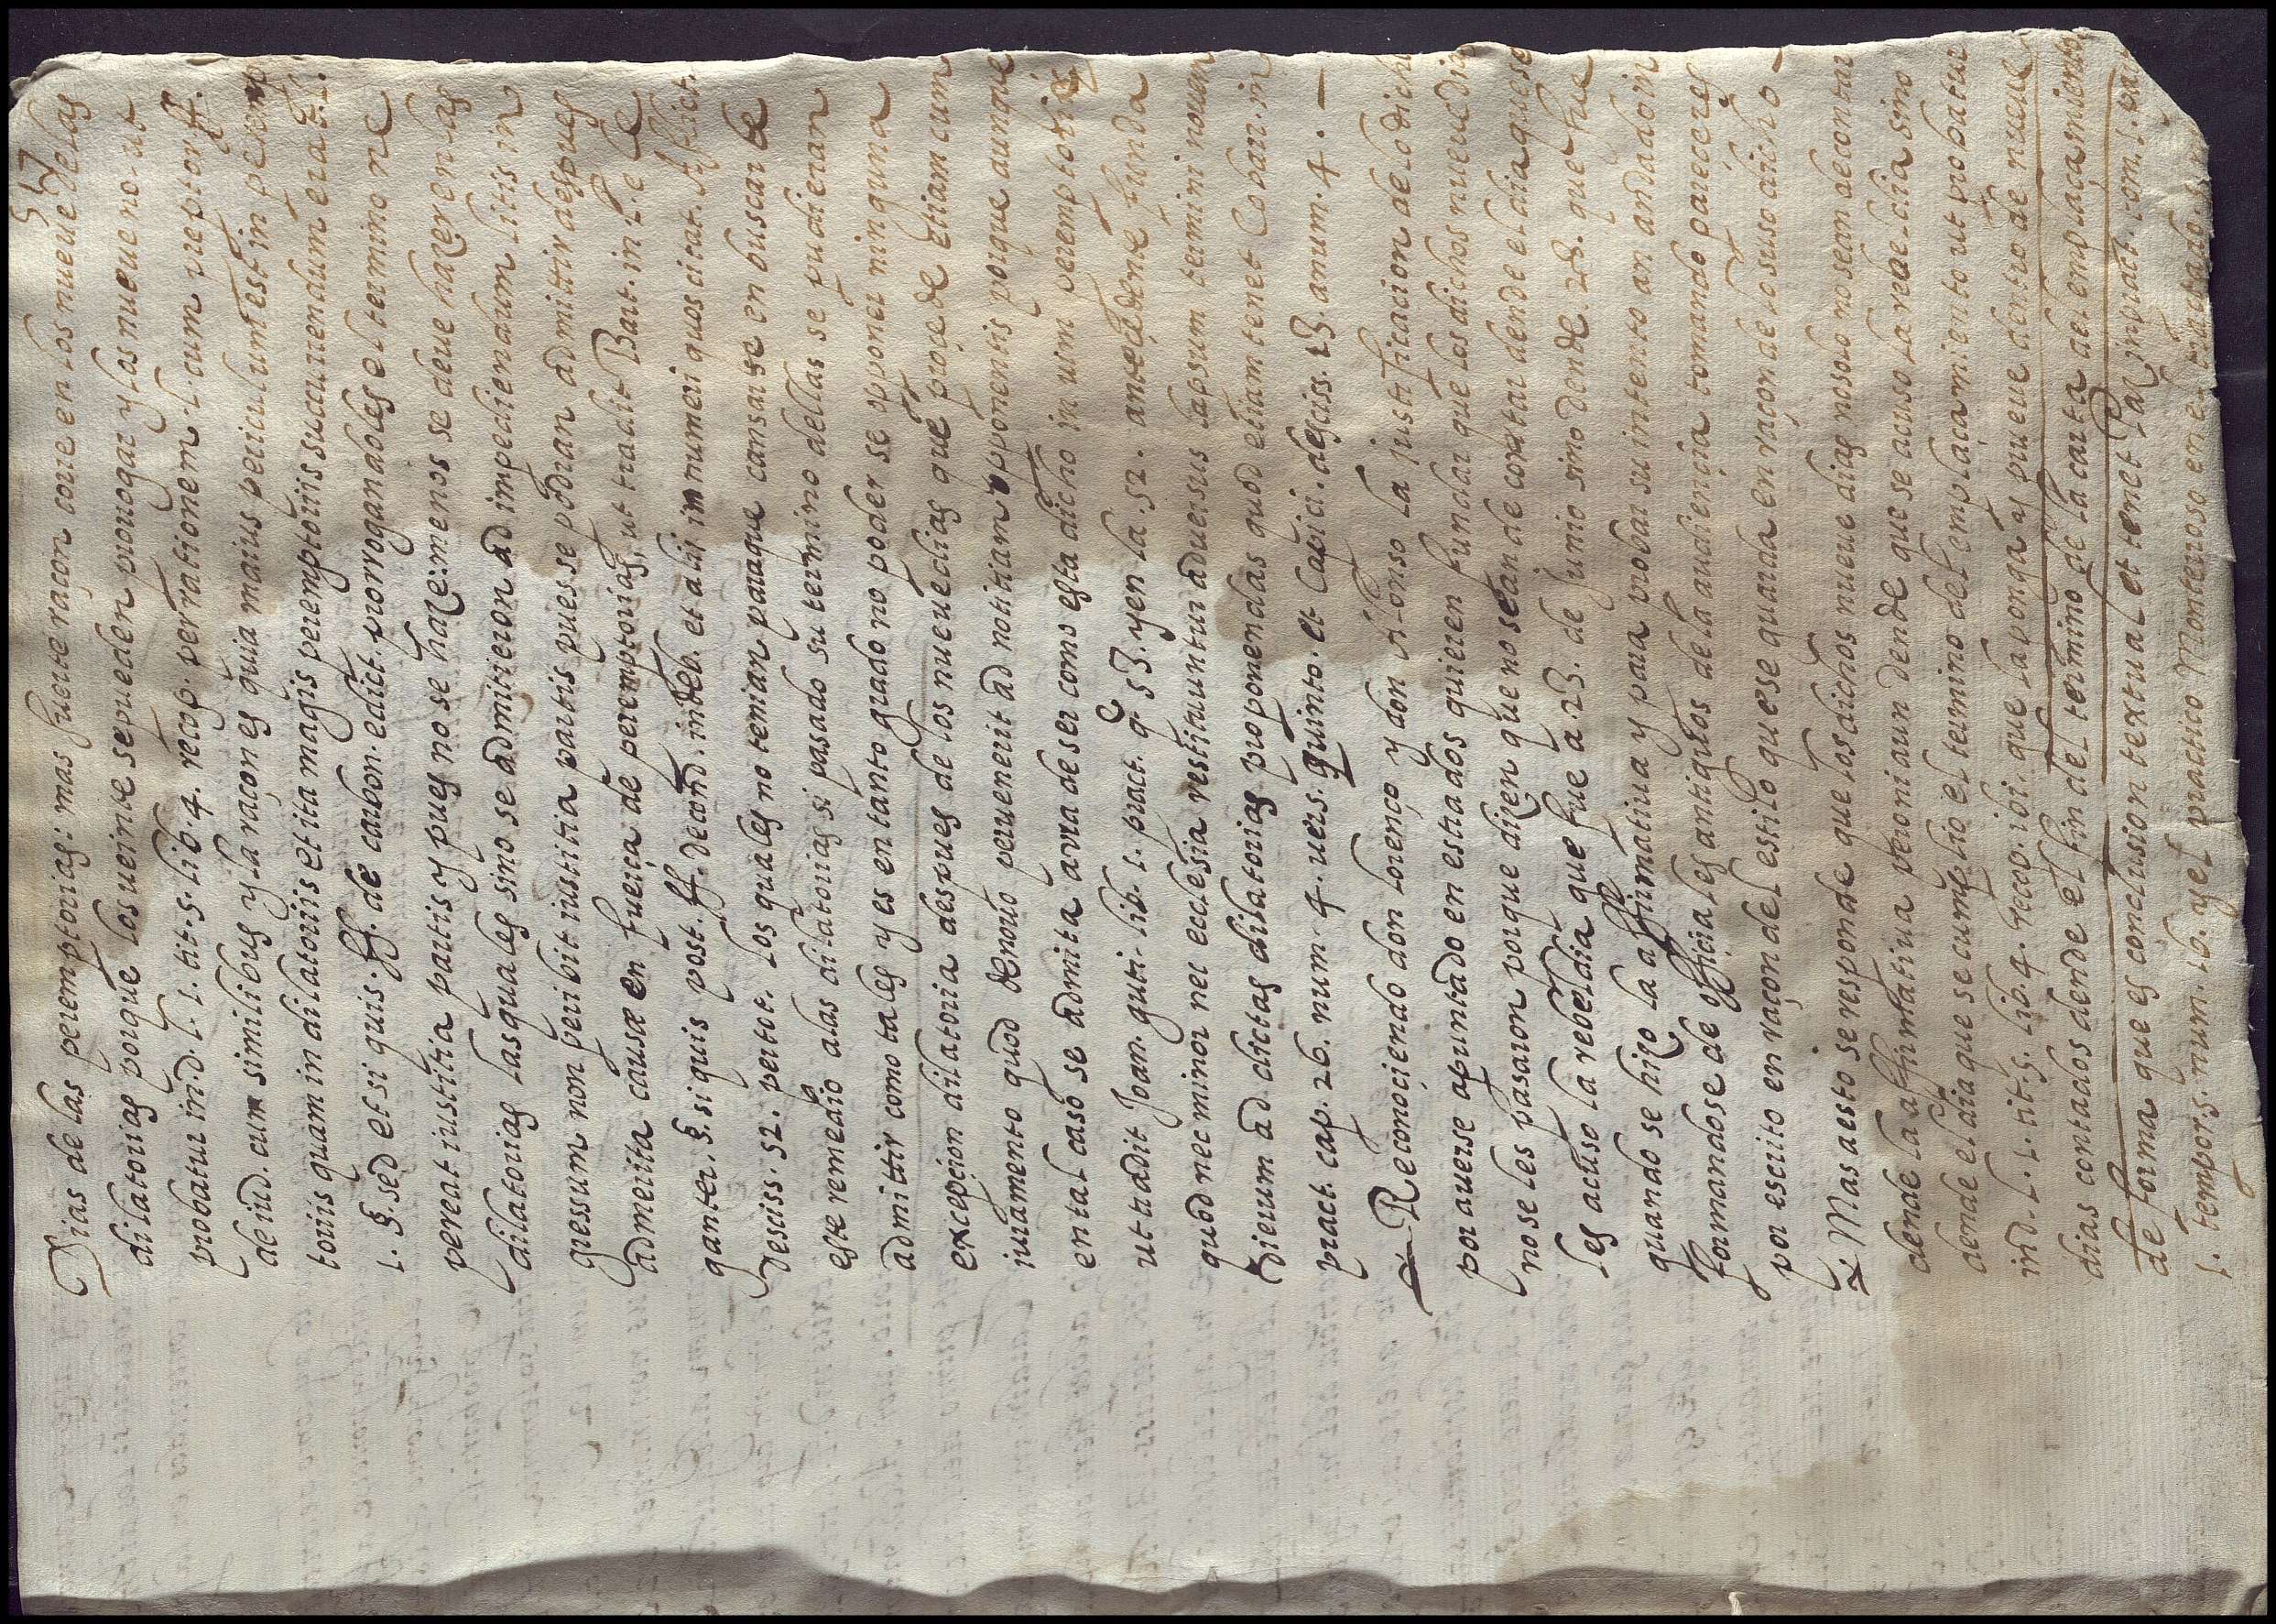 57
Dias de las peremptorias: mas fuerte raçon corre en los nueue de las
dilatorias porque los veinte se pueden prorogar y los nueue no. ut
probatur in. d. l. 1. tit. 5. lib. 4. recop. per rationem. l. cum preptor ff.
de iud. cum similibus y la raçon es quia maius periculum est in peremp
toriis quam in dilatoriis et ita magis peremptoriis sucurrendum erat. l.
1. §. sed et si quis. ff. de carbon. edict. prorrogandoles el termino ne
pereat iustitia partis y pues no se haze: menos se deue hazer en las
dilatorias las quales sino se admitieron ad impediendum litis in
gressum non peribit iustitia partis pues se podran admittir despues
admerita causæ en fuerça de peremptorias, ut tradit Bart. in l. e le
ganter. §. si quis post. ff. de cond. indeb. et alij innumeri quos citat. Afflict.
desciss. 52. per tot. los quales no tenian paraque cansarse en buscar be
este remedio alas dilatorias si pasado su termino dellas se pudieran
admittir como tales y es en tanto grado no poder se opponer ninguna
excepçion dilatoria despues de los nueue dias que proçede etiam cum
iuramento quod denouo peruenerit ad notitiam opponentis porque aunque
en tal caso se admita avra de ser como esta dicho in uim peremptoriæ
ut tradit Joan. guti. lib. 1. pract. q. 53. y en la. 52. anteçedente funda
quod nec minor nec ecclesia restituuntur aduersus lapsum termini nouem
dierum ad dictas dilatorias proponendas quod etiam tenet Cobar. in
pract. cap. 26. num. 4. uers. quinto. et Capici. desciss. 13. anum. 4. –
Reconociendo don lorenço y don Alonso la justificacion de lo dicho
por auerse apuntado en estrados quieren fundar que los dichos nueue dias
no se les pasaron porque dizen que no se an de contar dende el dia que se
les acuso la rebeldia que fue a. 23. de junio sino dende. 28. que fue
quando se hizo la affirmatiua y para probar su intento an andado in
formandose de offiçiales antiguos de la audiençia tomando pareceres
por escrito en raçon del estilo que se guarda en raçon de lo suso dicho –
Mas a esto se responde que los dichos nueue dias no solo no se an de contar
dende la affirmatiua pero ni aun dende que se acuso la rebeldia sino
dende el dia que se cumplio el termino del emplaçamiento ut probatur
in d. l. 1. tit. 5. lib. 4. recop. ibi, que la ponga y prueue dentro de nueue
dias contados dende el fin del termino de la carta del emplaçamiento
de forma que es conclusion textual et tenet Paz in pract. tom. 1. par
1. tempor. 5. num. 16. y el practico Monterroso en el tractado.